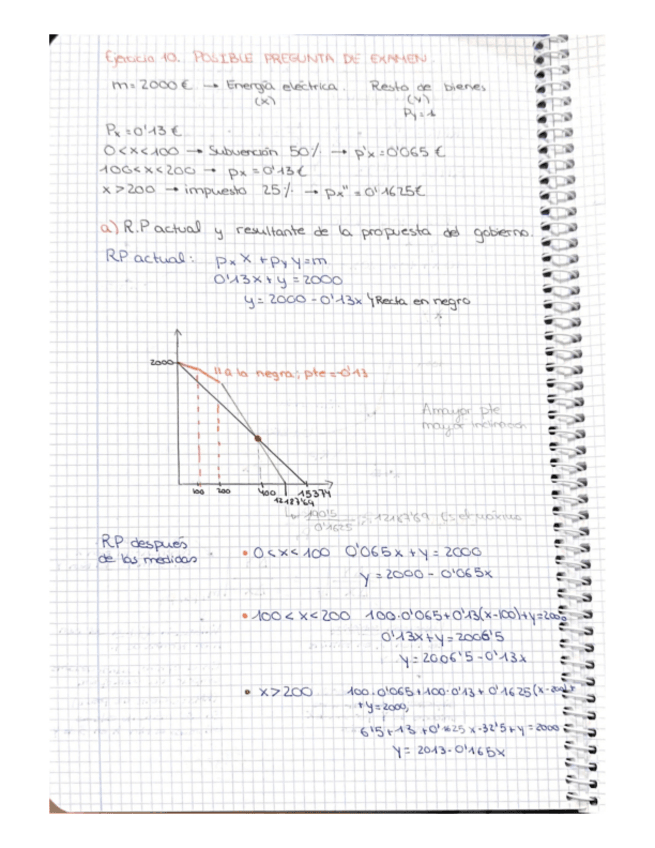 Ejercicio 10. POSIBLE PREGUNTA DE EXAMEN.
m = 2000 € → Energía eléctrica. Resto de bienes
(x) (y)
Py = 1
Px = 0'13 €
0<x<100 → Subvención 50% → p'x = 0'065 €
100<x<200 → px = 0'13€
x>200 → impuesto 25% → px'' = 0'1625€
a) R.P actual y resultante de la propuesta del gobierno.
RP actual: px x + py y = m
0'13x + y = 2000
y = 2000 - 0'13x Recta en negro
2000
// a la negra; pte = -0'13
A mayor pte
mayor inclinación
100 200 400 15374
12187'69
0'1625 = 12187'69
R.P después
de las medidas
• 0<x<100 0'065x + y = 2000
y = 2000 - 0'065x
• 100<x<200 100·0'065+0'13(x-100)+y=2000
0'13x+y = 2006'5
y = 2006'5 - 0'13x
• x>200 100·0'065+100·0'13+0'1625(x-200)+
+y=2000,
6'5+13+0'1625x-32'5+y=2000
y = 2013-0'165x